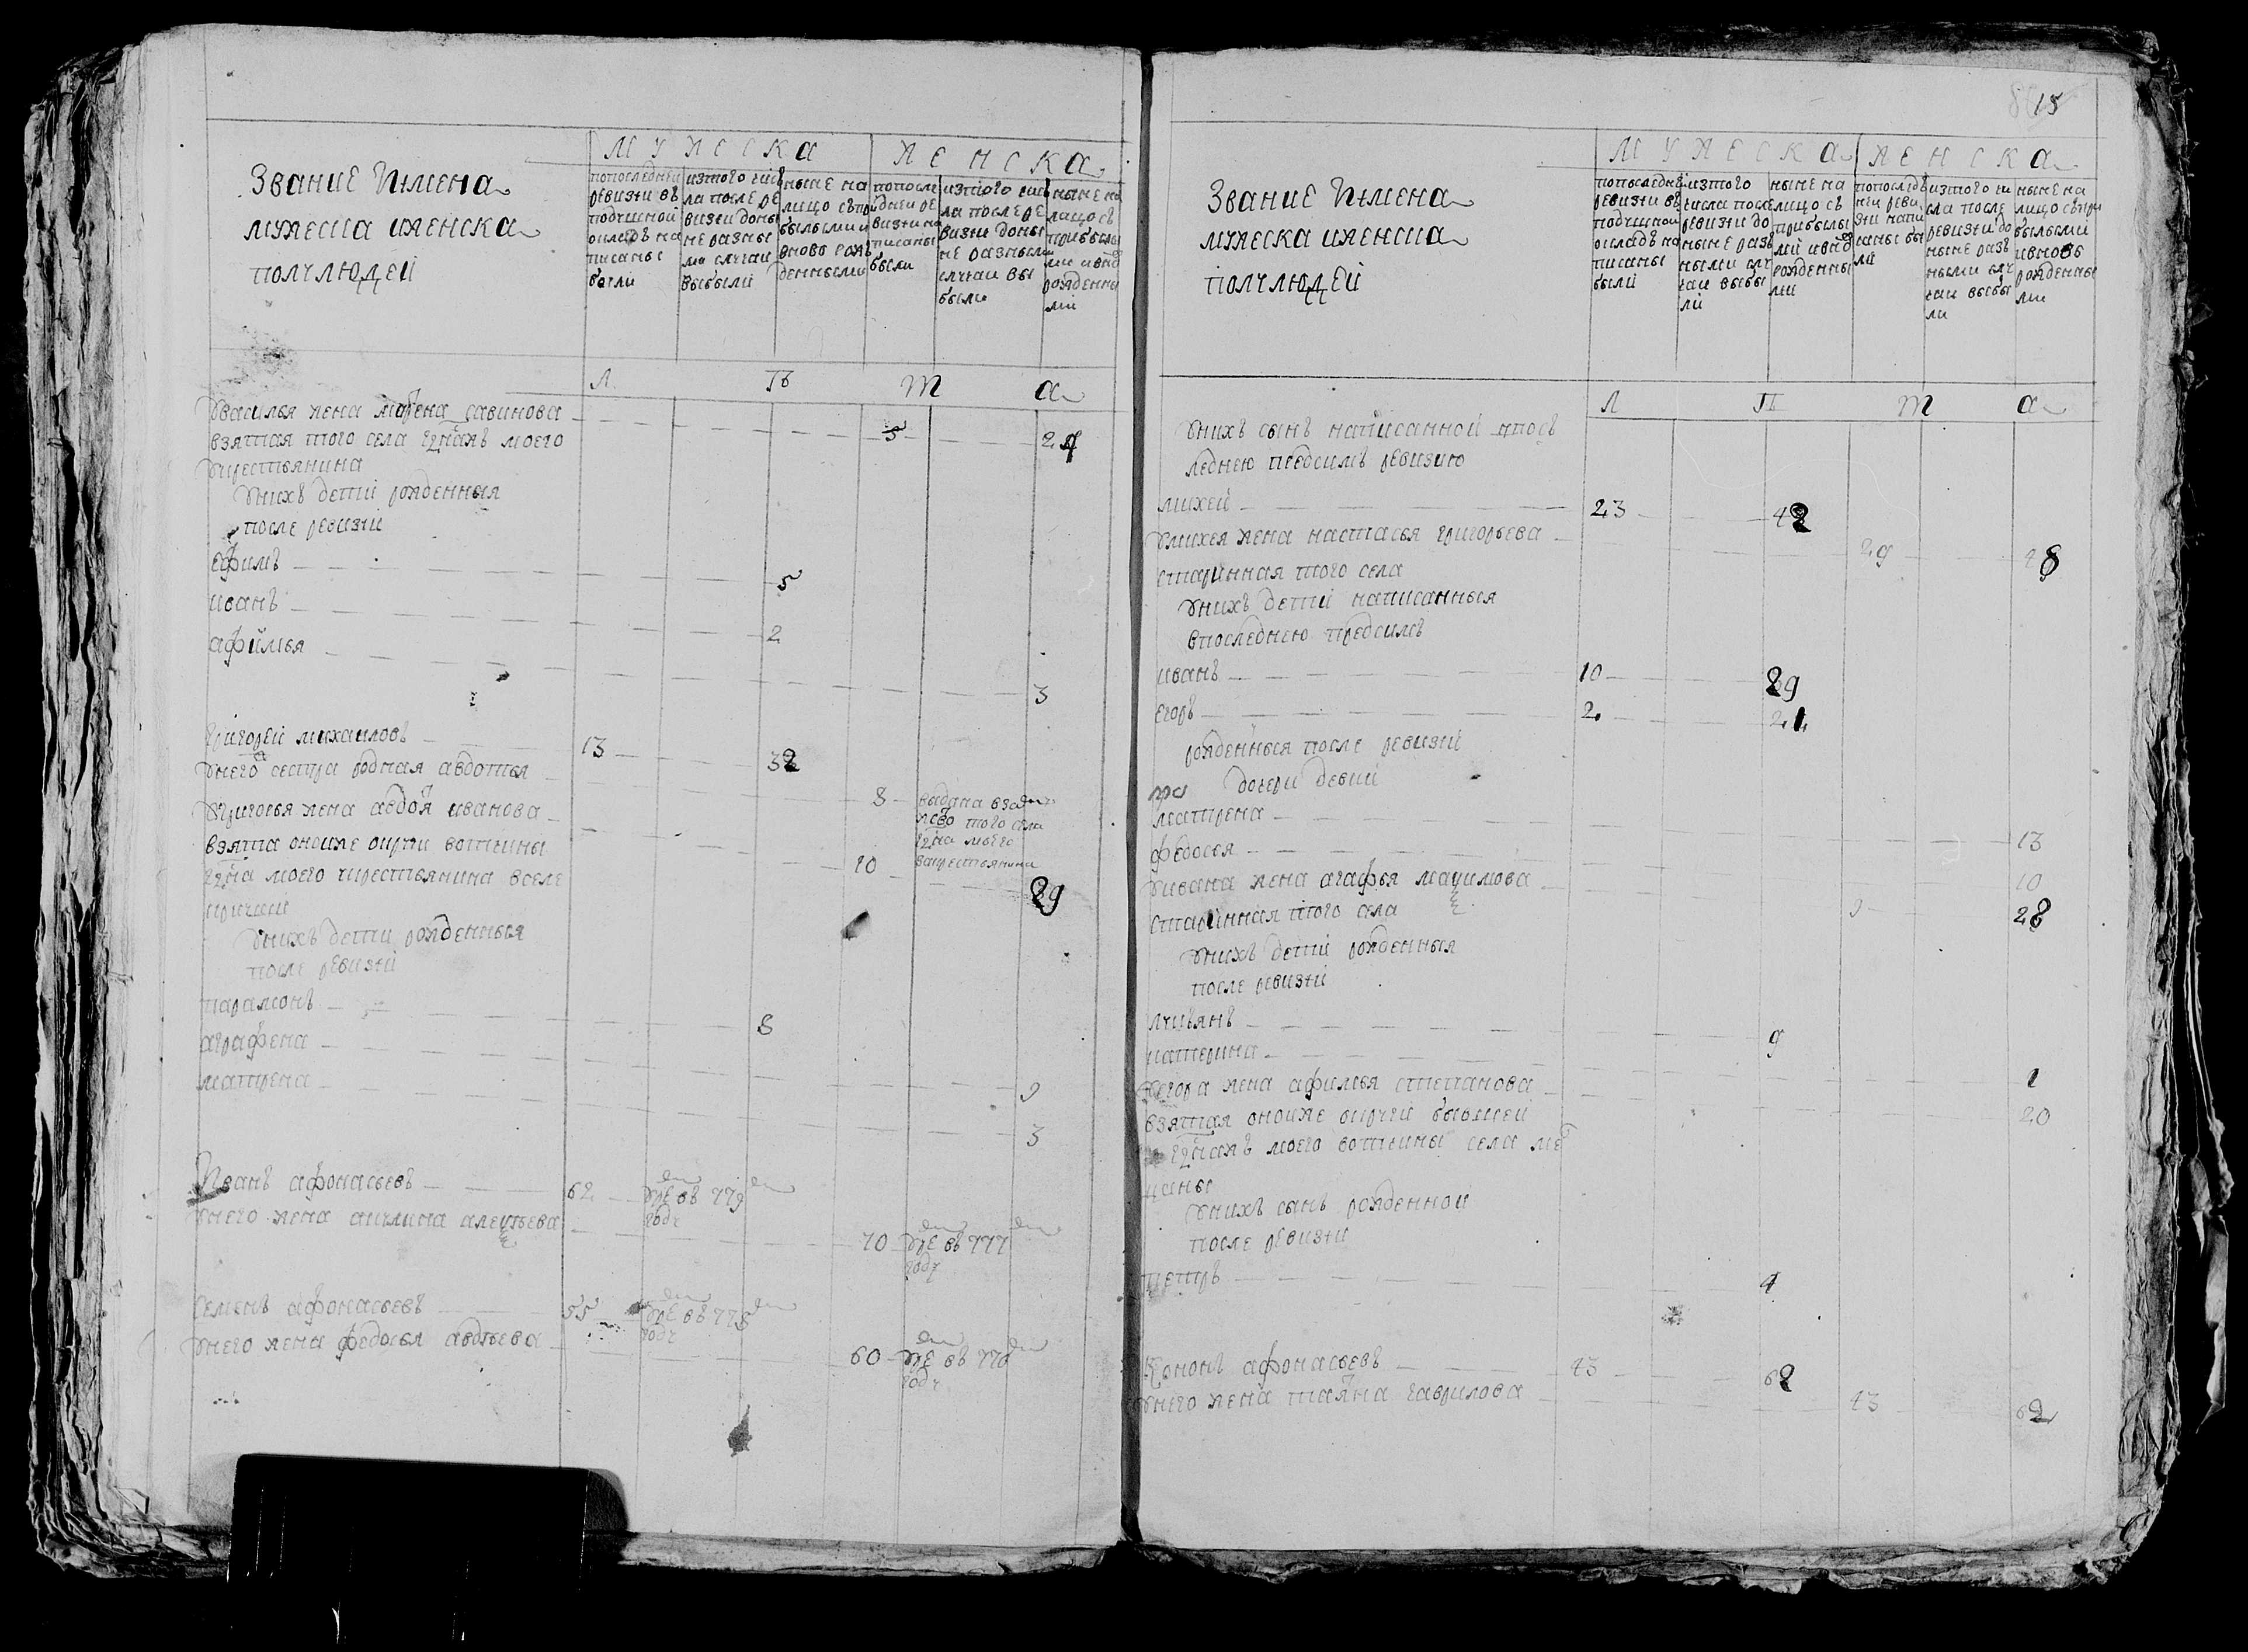 Звание Имена
мужеска иженска
полу людей
мужеска
женска
попоследней
ревизии въ
подушной
окладъ на
писаны
были
изтого чис
ла после ре
визии доны
не разны
ми случаи
выбыли
ныне на
лицо съпри
былыми и
вновь рож
денными
попосле
дней ре
визии на
писаны
были
изтого чис
ла после ре
визии доны
не разными
случаи вы
были
ныне на
лицо съ
прибылы
ми ивнов
рожденны
ми
л ѣ т а
уВасилья жена мотрена савинова 5 24
взятая того села
крестьянина
уних дети рожденныя
после ревизии
ефимъ 5
иванъ 2
афимья 3
григорей михаиловъ 13 32
унего сестра родная авдотья 8 выдана взаму
того села
моего
крестьянина
уГригорья жена авдотя иванова 10 29
взята оноиже округи вотчины
моего крестьянина
униxъ дети рожденныя
после ревизии
парамонъ 8
аграфена 9
матрена 3
Иванъ афонасьевъ 62 умре въ 779
году
унего жена акулина алексѣева 70 умре въ 777
году
семенъ афонасьевъ 55 умре въ 778
году
унего жена федосья авдѣева 60 умре въ 770
году
15
Звание Имена
мужеска иженска
полу людей
мужеска
женска
попоследне
ревизии въ
подушной
окладъ на
писаны
были
изтого
числа после
ревизии до
ныне раз
ными слу
чаи выбы
ли
ныне на
лицо съ
прибылы
ми ивнов
рожденны
ми
попослед
ней реви
зии напи
саны бы
ли
изтого чи
сла после
ревизии до
ныне раз
ными слу
чаи выбы
ли
ныне на
лицо съпри
былыми
ивновь
рожденны
ми
л ѣ т а
унихъ сынъ написанной впос
леднею предсимъ ревизию
михей 23 42
уМихея жена настасья григорьева 29 48
старинная того села
униxъ дети написанныя
впоследнею предсимъ
иванъ 10 29
егоръ 2 21
рожденныя после ревизии
дочери девки
матрена 13
федосья 10
уивана жена агафья максимова 9 28
старинная того села
униxъ дети рожденныя
после ревизии
лукьянъ 9
катерина 1
уегора жена афимья степанова 20
взятая оноиже округи
моего вотчины села
униxъ сынъ рожденной
после ревизии
петръ 4
Кононъ афонасьевъ 43 62
унего жена татяна гаврилова 43 62